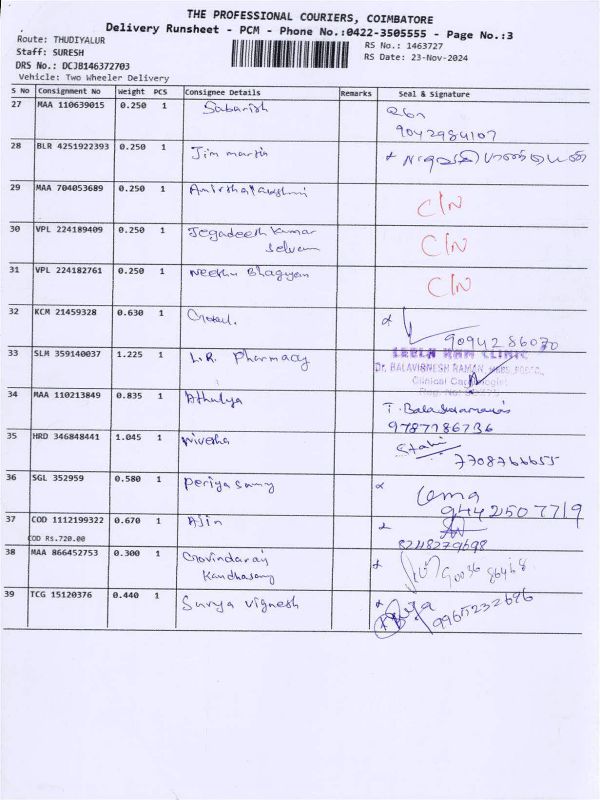 THE PROFESSIONAL COURIERS, COIMBATORE
Delivery Runsheet - PCM - Phone No.:0422-3505555 - Page No.:3
Route: THUDIYALUR
RS No.: 1463727
Staff: SURESH
RS Date: 23-Nov-2024
DRS No.: DCJB146372703
Vehicle: Two Wheeler Delivery
S No Consignment No Weight PCS Consignee Details Remarks Seal & Signature
27 MAA 110639015 0.250 1 Sabarish
9042984107
28 BLR 4251922393 0.250 1 Jim martin
29 MAA 704053689 0.250 1 C/N
30 VPL 224189409 0.250 1 Jegadeesh Kumar C/N
Selvam
31 VPL 224182761 0.250 1 Neethu Bhagyan C/N
32 KCM 21459328 0.630 1
9094286070
33 SLM 359140037 1.225 1 L.R. Pharmacy LEELA RAM CLINIC
Dr. BALAVIGNESH RAMAN
Clinical Cardiologist
34 MAA 110213849 0.835 1 Athulya
9787786736
35 HRD 346848441 1.045 1 Nivetha
7708766655
36 SGL 352959 0.580 1 Periyasamy Uma
9442507719
37 COD 1112199322 0.670 1 Ajin
COD Rs.720.00
38 MAA 866452753 0.300 1 Govindaraj
Kandhasamy
39 TCG 15120376 0.440 1 Surya Vignesh
9965232696